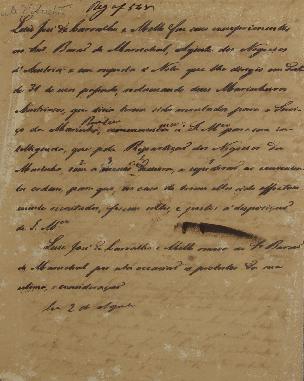 Reg af 528
Luiz José de Carvalho e Mello faz seus cumprimentos
ao Snr. Barão de Mareschal, Agente dos Negocios
d'Austria e em resposta a Nota que lhe dirigio em data
de 31 do mez passado, reclamando dous Marinheiros
Austriacos, que dizia terem sido recrutados para o Servi-
ço da Marinha, a S. Mce para sua in-
telligencia, que pela Repartição dos Negocios da
Marinha,
ordem para que, no caso de terem elles sido effectiva-
mente recrutados, soltos e postos á disposição
de S. Mce
Luiz José de Carvalho e Mello ao Sr Barão
de Mareschal por esta occasião os protestos da sua
estima, e consideração
2 de